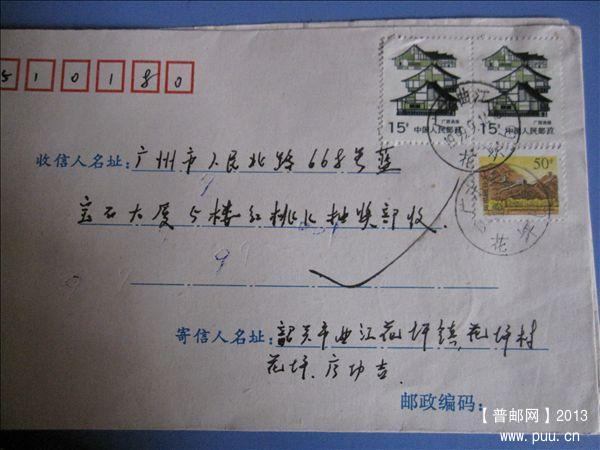 510180
15分 中国人民邮政 15分 中国人民邮政
曲江
花坪
50分
收信人名址: 广州市人民北路668号蓝
宝石大厦5楼红桃K抽奖部收
花坪
寄信人名址: 韶关市曲江花坪镇花坪村
花坪、
邮政编码:
【普邮网】2013
www.puu.cn